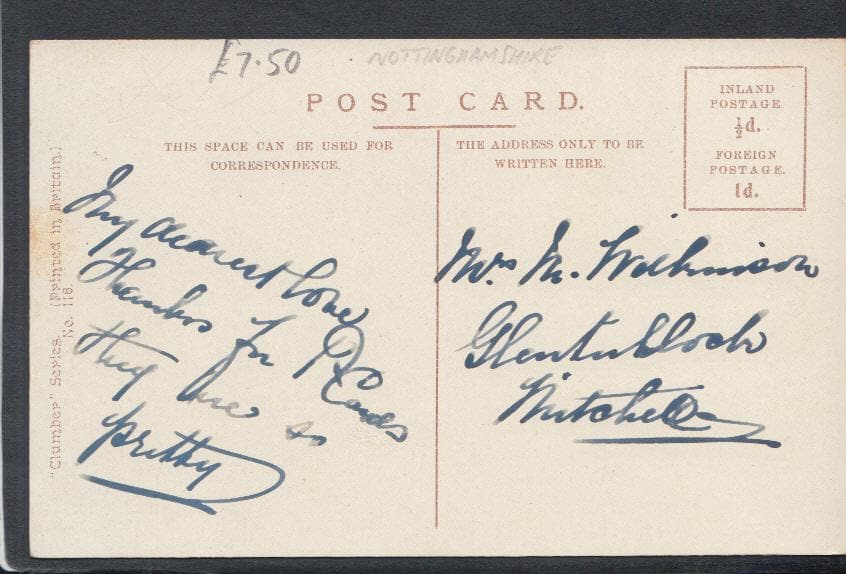 £7.50
NOTTINGHAMSHIRE
POST CARD.
THIS SPACE CAN BE USED FOR
CORRESPONDENCE.
THE ADDRESS ONLY TO BE
WRITTEN HERE.
INLAND
POSTAGE.
½d.
FOREIGN
POSTAGE.
1d.
"Clumber" Series. (Printed in Britain.)
No. 116.
My dearest love
Thanks for P Cards
they are so
pretty
Mrs M. Wilkinson
Mitchell